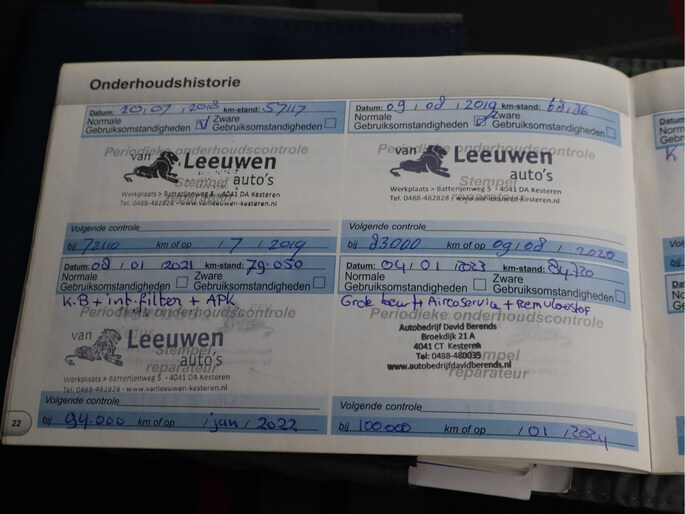 Onderhoudshistorie
Datum: 20, 07, 2018 km-stand: 57117
Normale
Gebruiksomstandigheden
Zware
Gebruiksomstandigheden
Periodieke onderhoudscontrole
van Leeuwen
auto's
Stempel
reparateur
Werkplaats > Batterijenweg 5 - 4041 DA Kesteren
Tel. 0488-482828 - www.vanleeuwen-kesteren.nl
Volgende controle
bij 7210 km of op / 7 / 2019
Datum: 09, 08, 2019 km-stand:
Normale
Gebruiksomstandigheden
Zware
Gebruiksomstandigheden
Periodieke onderhoudscontrole
van Leeuwen
auto's
Stempel
reparateur
Werkplaats > Batterijenweg 5 - 4041 DA Kesteren
Tel. 0488-482828 - www.vanleeuwen-kesteren.nl
Volgende controle
bij 83000 km of op 09, 08, 2020
Datum: 08, 01, 2021 km-stand: 79.050
Normale
Gebruiksomstandigheden
Zware
Gebruiksomstandigheden
K.B + int.filter + APK
Periodieke onderhoudscontrole
van Leeuwen
auto's
Stempel
reparateur
Werkplaats > Batterijenweg 5 - 4041 DA Kesteren
Tel. 0488-482828 - www.vanleeuwen-kesteren.nl
Volgende controle
bij 94.000 km of op / jan / 2022
Datum: 04, 01, 2023 km-stand: 84720
Normale
Gebruiksomstandigheden
Zware
Gebruiksomstandigheden
Grote beurt + Aircoservice + Remvloeistof
Periodieke onderhoudscontrole
Autobedrijf David Berends
Broekdijk 21 A
4041 CT Kesteren
Tel: 0488-480035
www.autobedrijfdavidberends.nl
Stempel
reparateur
Volgende controle
bij 100000 km of op / 01 / 2024
22